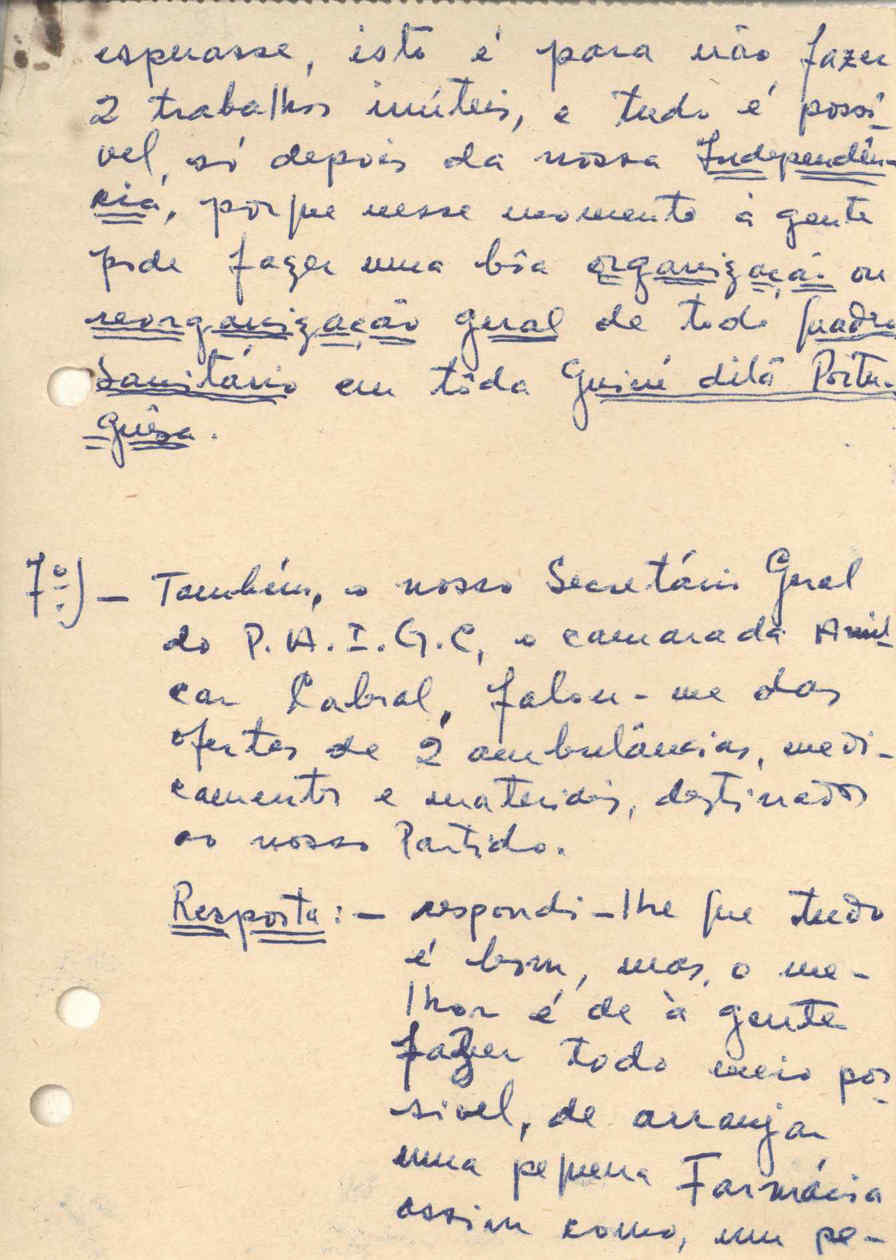 esperasse, isto é para não fazer
2 trabalhos inúteis, e tudo é possí-
vel, só depois da nossa Independên-
cia, porque nesse momento à gente
pode fazer uma bôa organização ou
reorganização geral de todo quadro
Sanitário em tôda Guiné dita Portu-
guêsa.
7º) - Também, o nosso Secretário Geral
do P.A.I.G.C, o camarada Amíl-
car Cabral, falou-me das
ofertas de 2 ambulâncias, medi-
camentos e materiais, destinados
ao nosso Partido.
Resposta: - respondi-lhe que tudo
é bom, mas, o me-
lhor é de à gente
fazer todo meio pos-
sivel, de arranjar
uma pequena Farmácia
assim como, um pe-